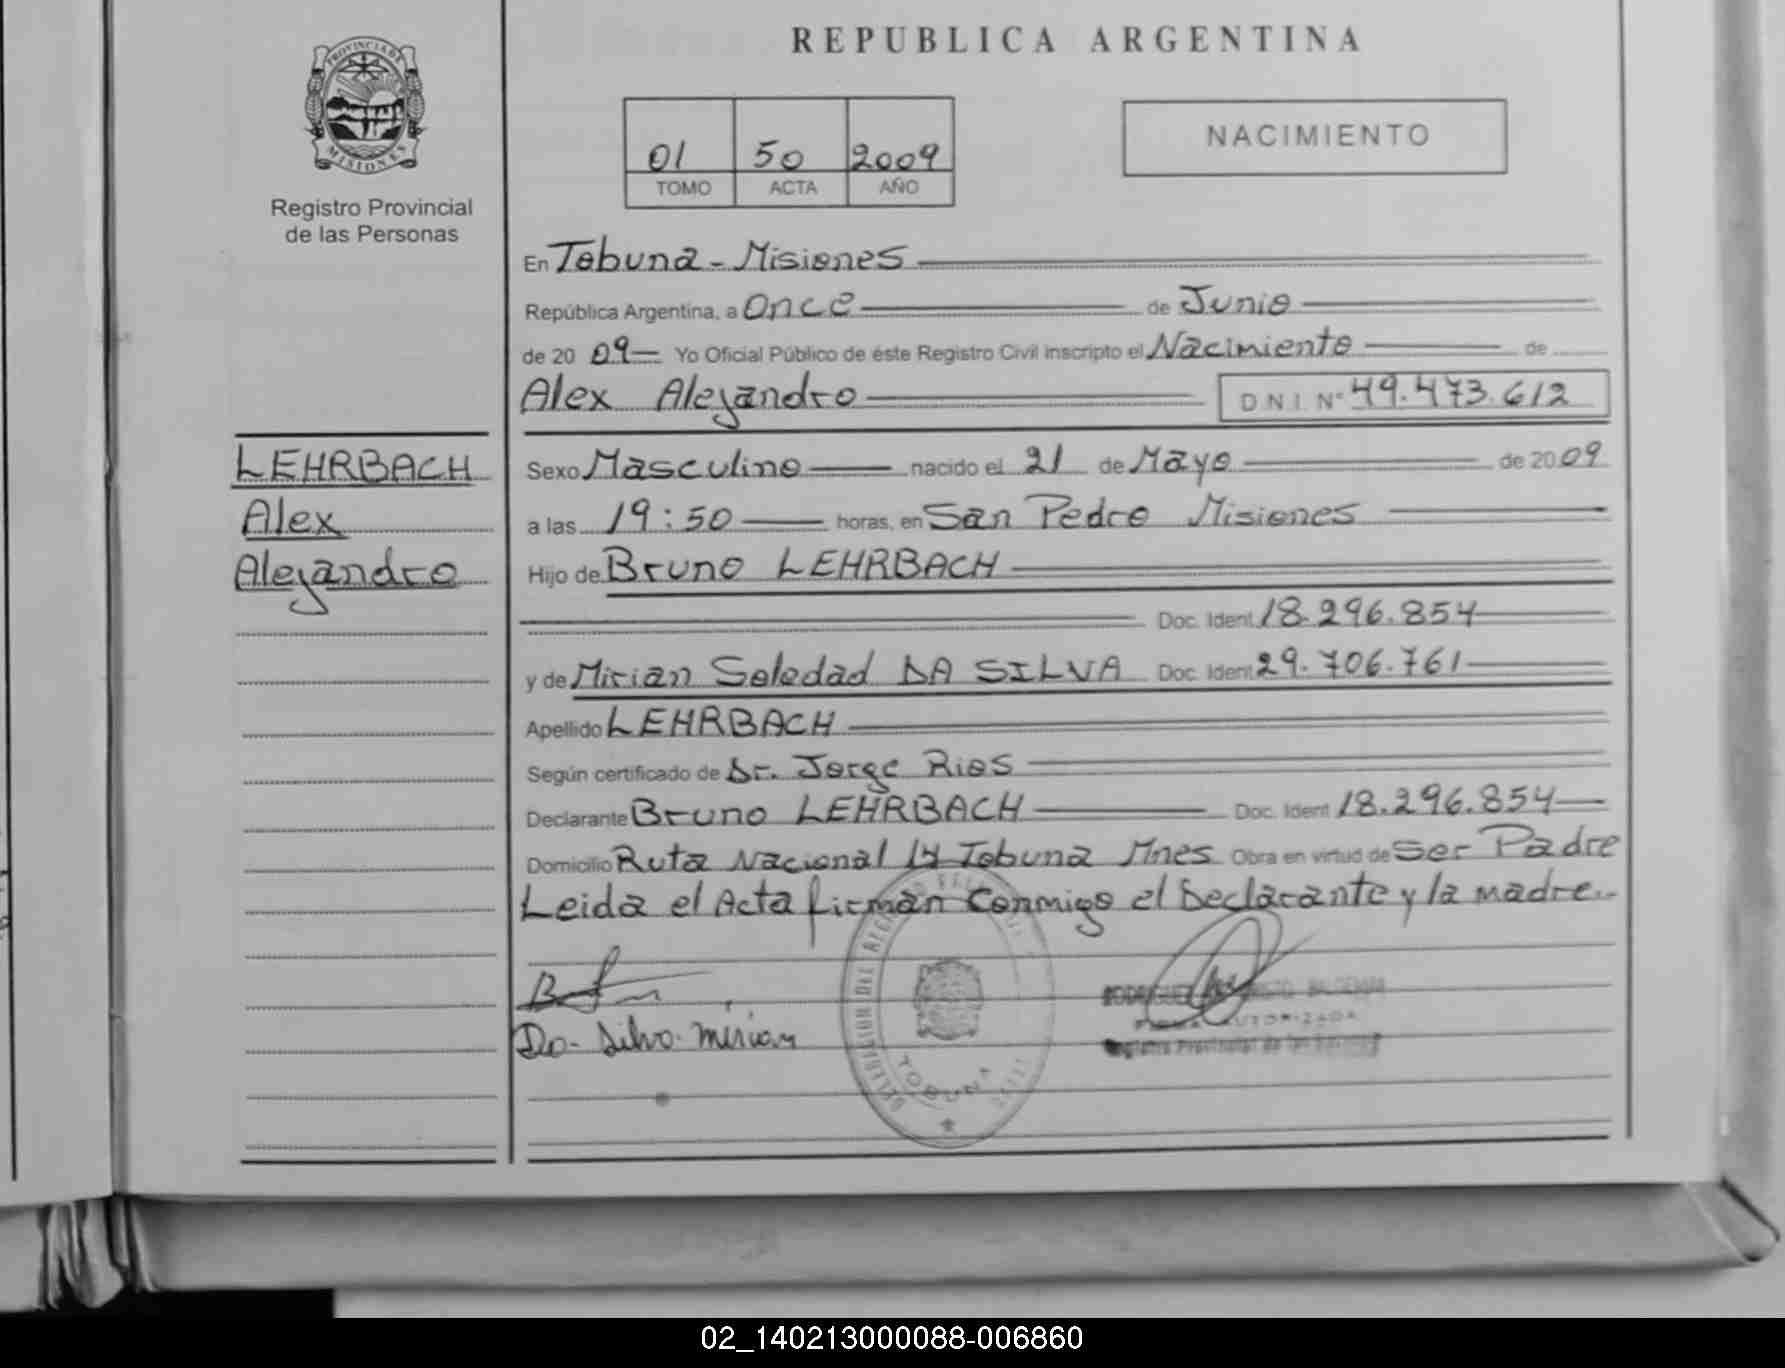 REPUBLICA ARGENTINA
PROVINCIA DE
MISIONES
Registro Provincial
de las Personas
01 50 2009
TOMO ACTA AÑO
NACIMIENTO
En Tobuna - Misiones
República Argentina, a Once de Junio
de 20 09 Yo Oficial Público de éste Registro Civil inscripto el Nacimiento de
Alex Alejandro D.N.I. Nº 49.473.612
LEHRBACH
Alex
Alejandro
Sexo Masculino nacido el 21 de Mayo de 20 09
a las 19:50 horas, en San Pedro Misiones
Hijo de Bruno LEHRBACH
Doc. Ident 18.296.854
y de Mirian Soledad DA SILVA Doc. Ident 29.706.761
Apellido LEHRBACH
Según certificado de Dr. Jorge Rios
Declarante Bruno LEHRBACH Doc. Ident 18.296.854
Domicilio Ruta Nacional 14 Tobuna Mnes Obra en virtud de Ser Padre
Leida el Acta firman Conmigo el Declarante y la madre..
Da Silva Mirian
TOBUNA
RODRIGUEZ
FIRMA AUTORIZADA
Registro Provincial de las
02_140213000088-006860